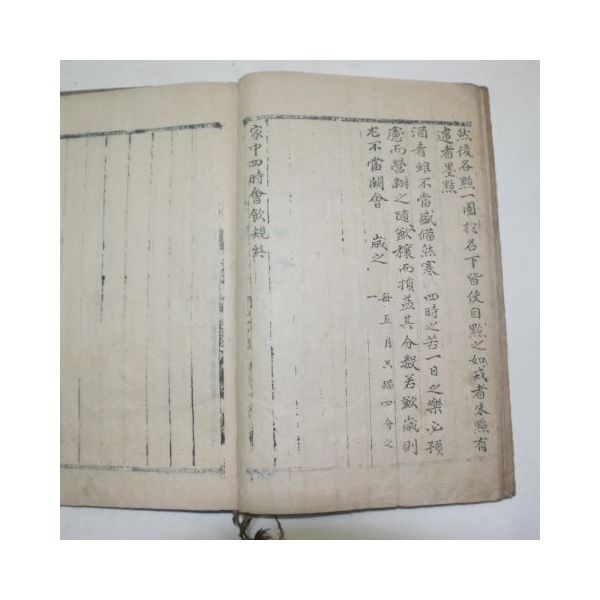 然後各點一圈於名下皆使自點之如戒者朱點有
違者墨點
酒肴雖不當盛備然寒 四時之苦一日之樂必預
慮而營辦之隨歉穰而損益其分數若歉歲則
尨不當闕會 歲之 每五月只備四分之一
家中四時會飲規終